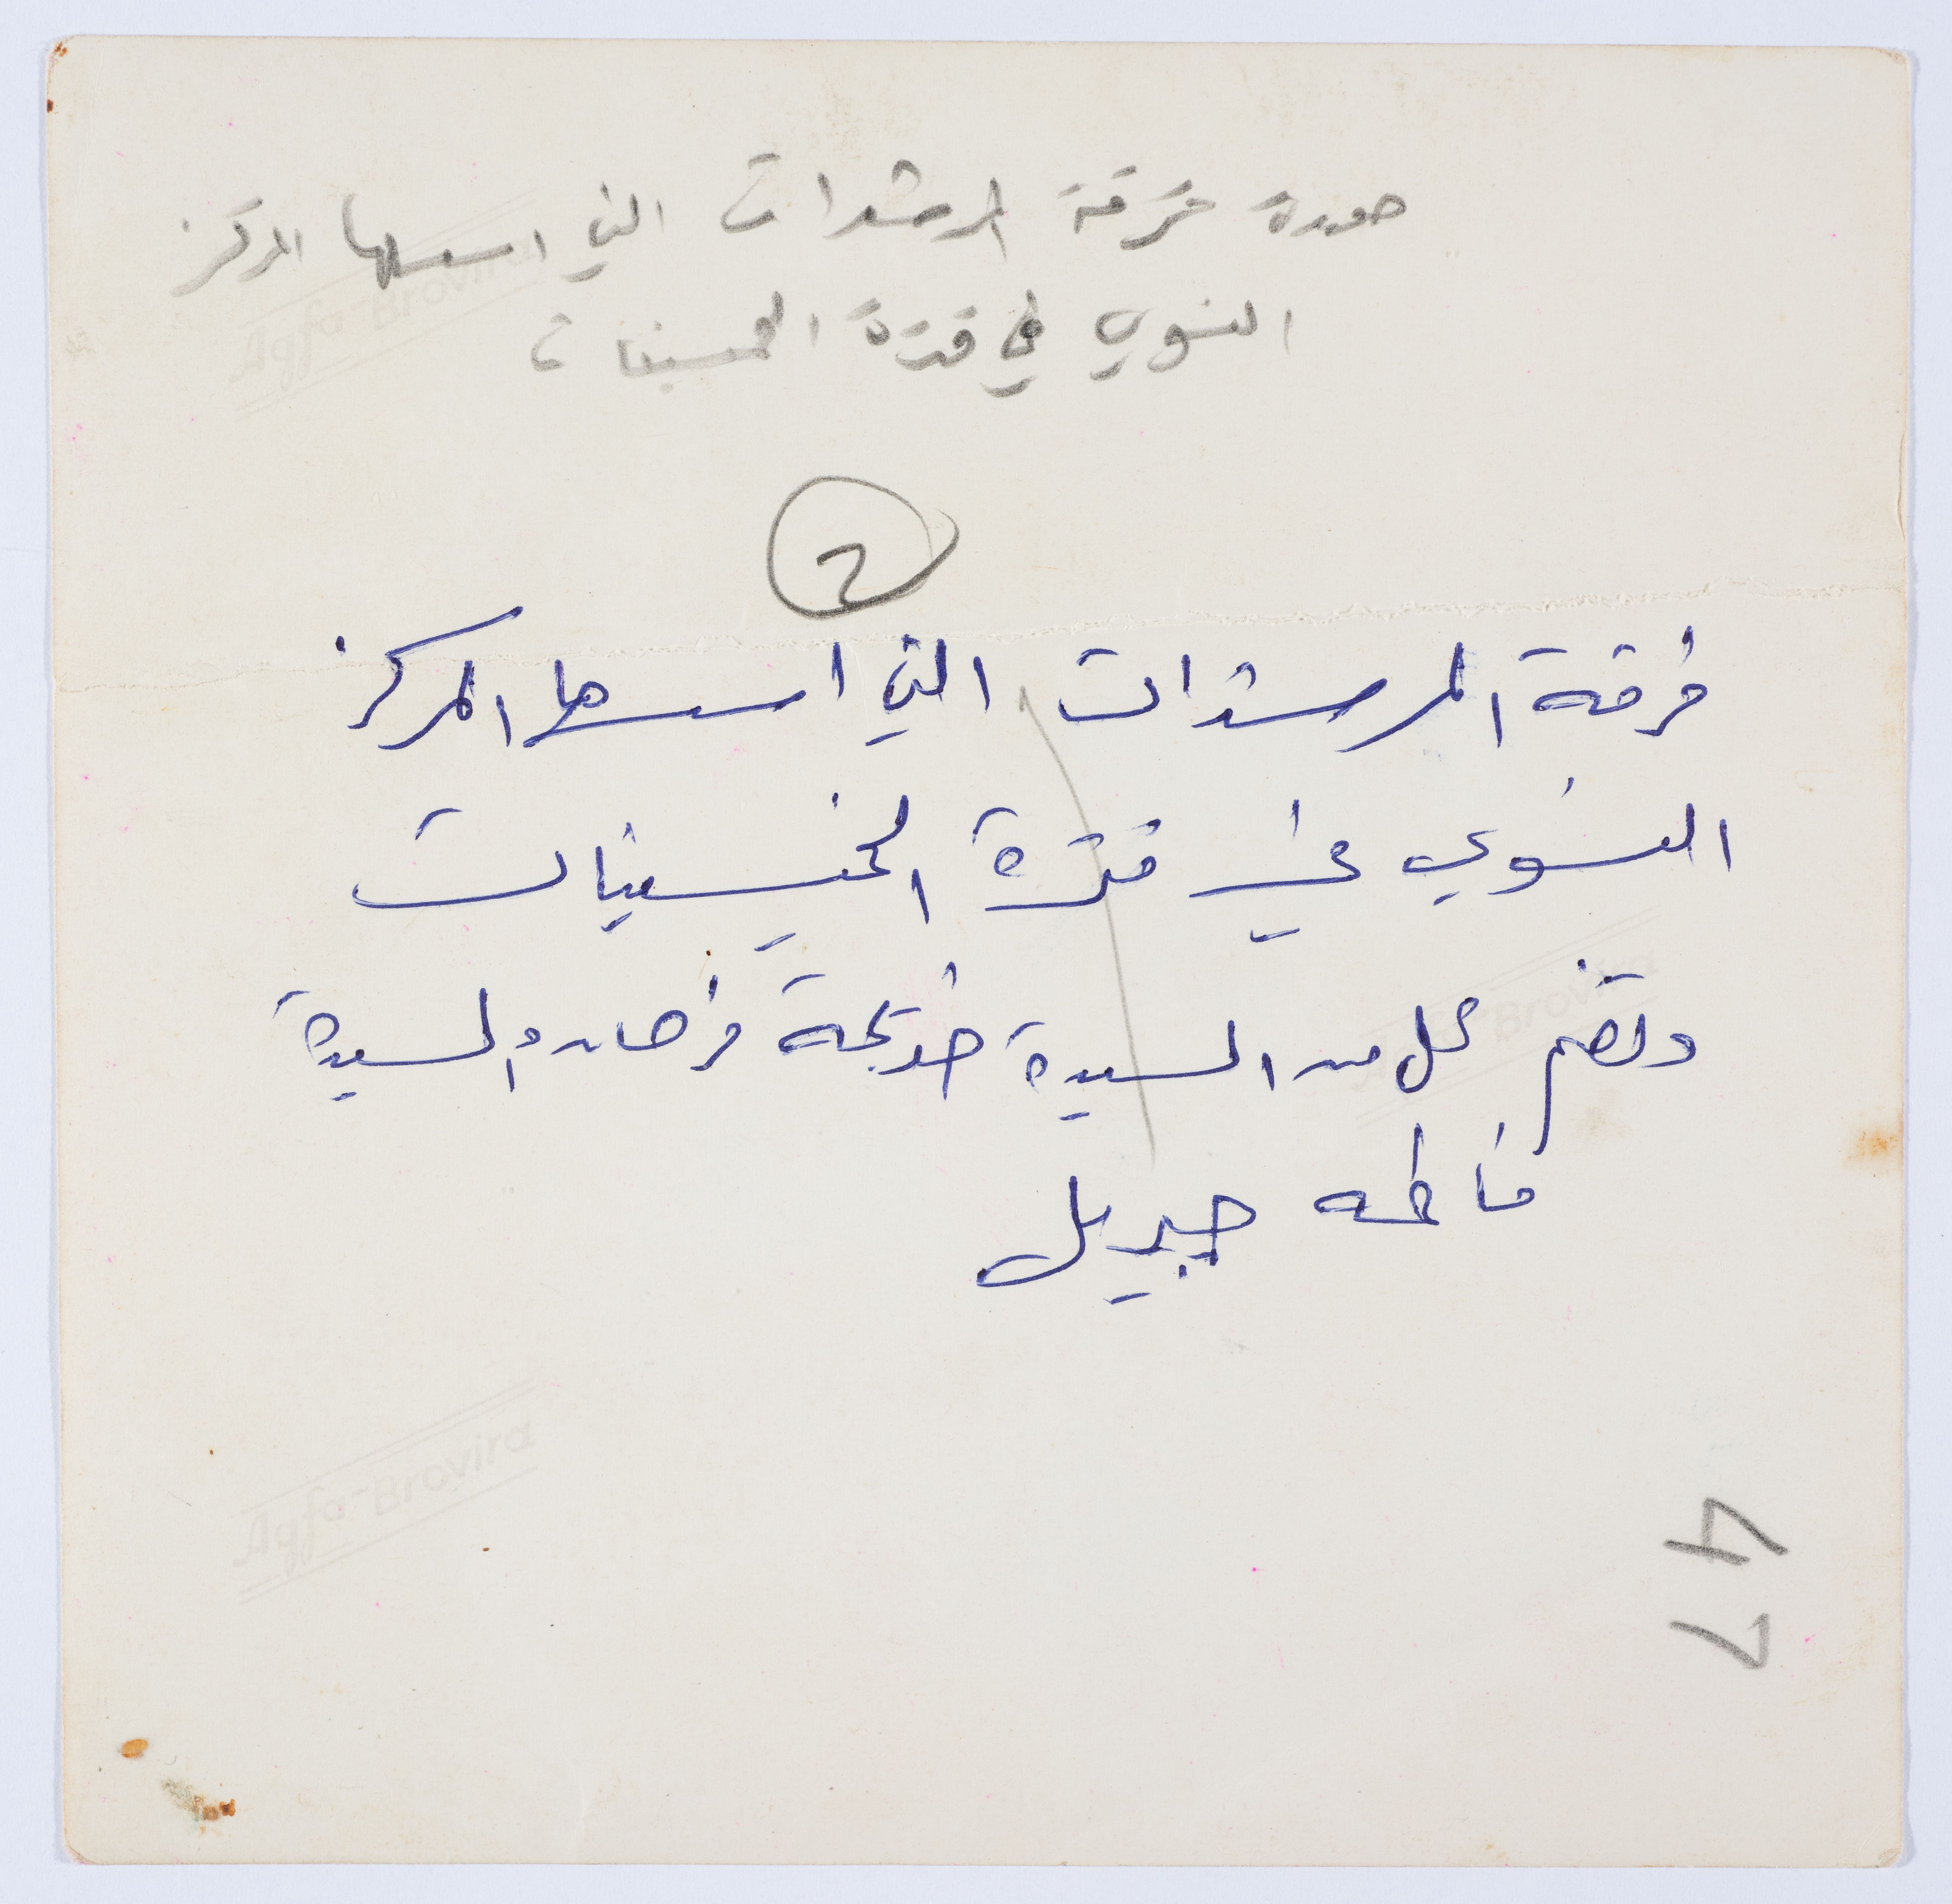 صورة فرقة المرشدات التي اسسها المركز
النسوي في فترة الخمسينات
2
فرقة المرشدات التي اسسها المركز
النسوي في فترة الخمسينيات
وتضم كل من السيدة خديجة فرحات والسيدة
فاطمه جبريل
47
Agfa-Brovira
Agfa-Brovira
Agfa-Brovira